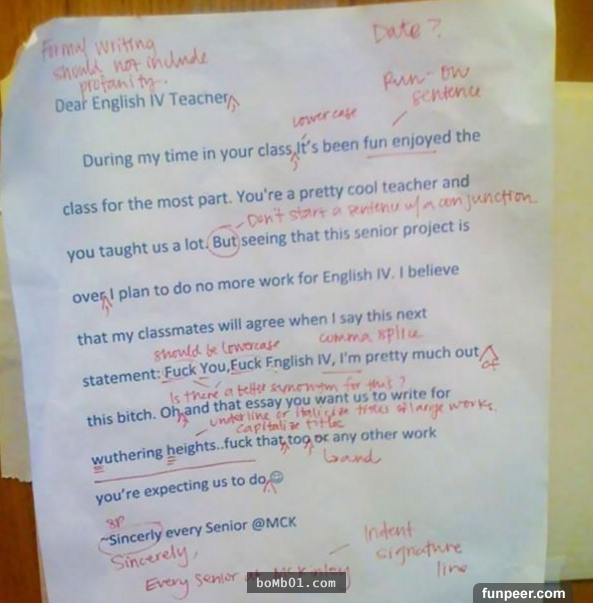 Formal writing
should not include
profanity...
Date?
Dear English IV Teacher
Run-on
sentence
lowercase
During my time in your class, It's been fun enjoyed the
class for the most part. You're a pretty cool teacher and
Don't start a sentence w/ a conjunction.
you taught us a lot. But seeing that this senior project is
over, I plan to do no more work for English IV. I believe
that my classmates will agree when I say this next
should be lowercase
comma splice
statement: Fuck You,Fuck English IV, I'm pretty much out
of
Is there a better synonym for this?
this bitch. Oh, and that essay you want us to write for
underline or italicize titles of large works.
capitalize title
wuthering heights..fuck that, too, or any other work
band
you're expecting us to do.
sp
~Sincerly every Senior @MCK
Sincerely,
Every senior at
Indent
signature
line
boMb01.com
funpeer.com